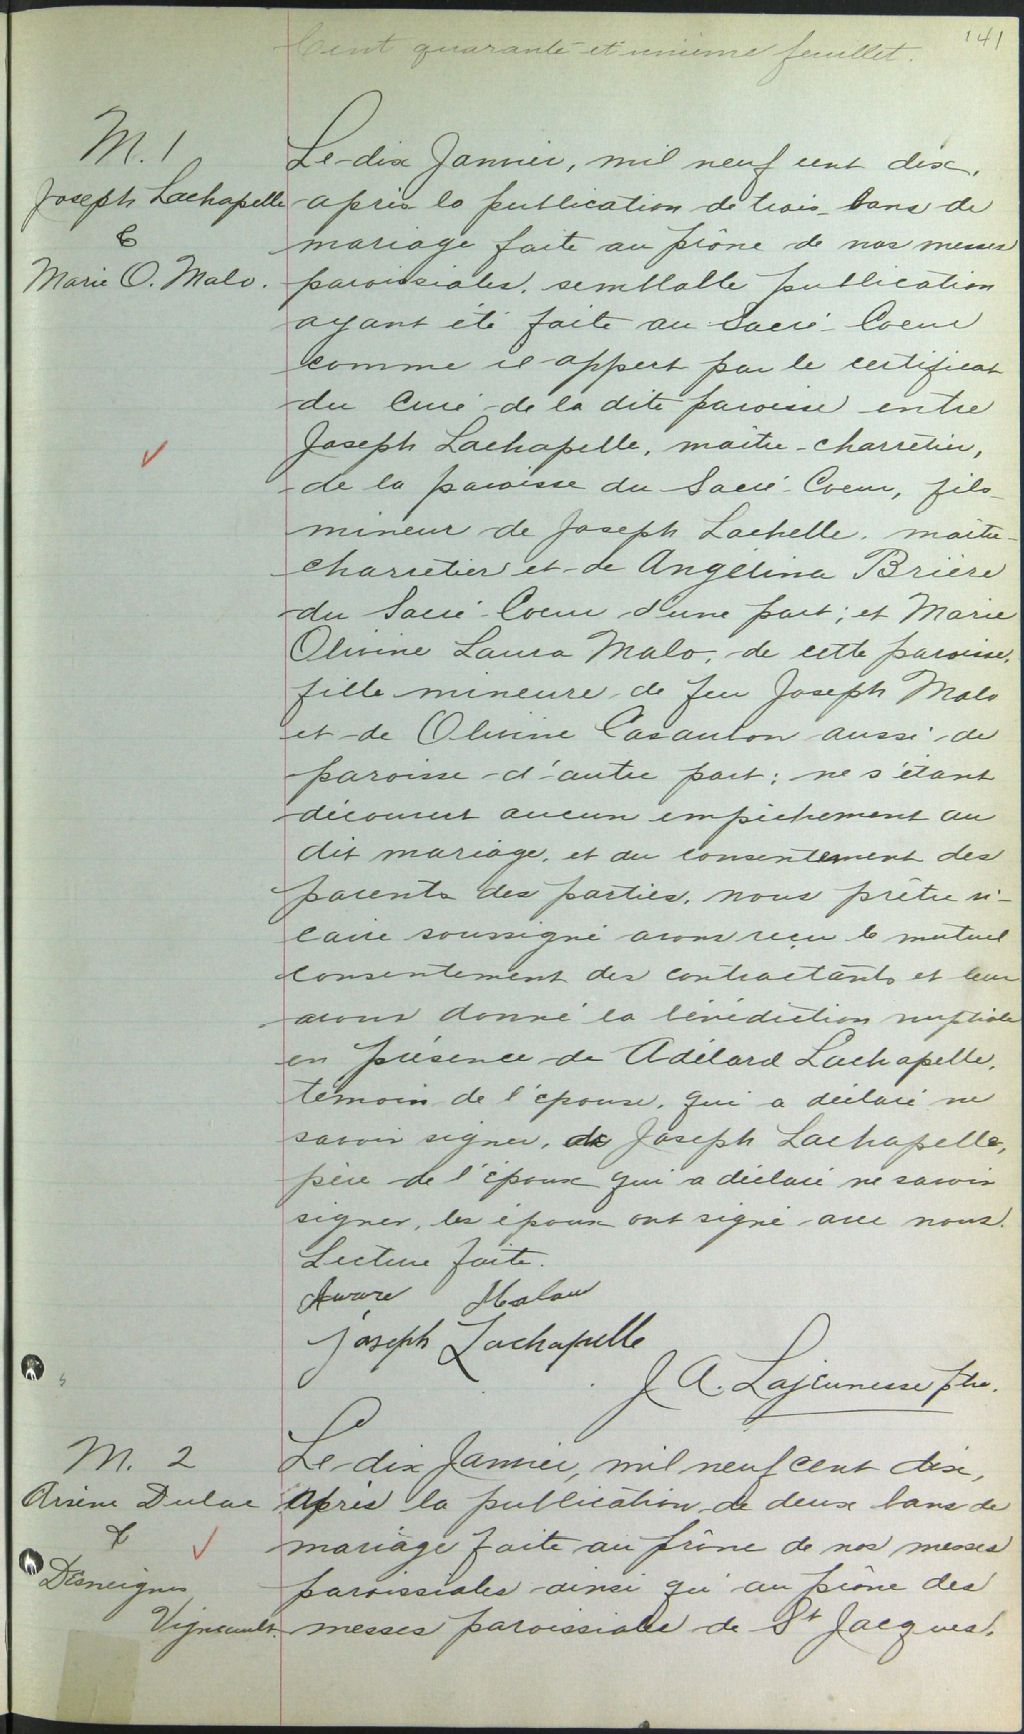 141
Cent quarante et unième feuillet.
M. 1
Joseph Lachapelle
&
Marie O. Malo.
Le dix Janvier, mil neuf cent dix,
après la publication de trois bans de
mariage faite au prône de nos messes
paroissiales, semblable publication
ayant été faite au Sacré-Coeur
comme il appert par le certificat
du Curé de la dite paroisse entre
Joseph Lachapelle, maître-charretier,
de la paroisse du Sacré-Coeur, fils
mineur de Joseph Lachelle, maître-
charretier et de Angélina Brière
du Sacré-Coeur d'une part; et Marie
Olivine Laura Malo, de cette paroisse,
fille mineure de feu Joseph Malo
et de Olivine Casaubon aussi de
paroisse d'autre part; ne s'étant
découvert aucun empêchement au
dit mariage, et du consentement des
parents des parties, nous prêtre vi-
caire soussigné avons reçu le mutuel
consentement des contractants et leur
avons donné la bénédiction nuptiale
en présence de Adélard Lachapelle,
témoin de l'épouse, qui a déclaré ne
savoir signer, de Joseph Lachapelle,
père de l'époux qui a déclaré ne savoir
signer, les époux ont signé avec nous.
Lecture faite.
Malau
Joseph Lachapelle
J A. Lajeunesse ptre.
M. 2
Arsène Dulac
&
Désneiges
Vigneault.
Le dix Janvier, mil neuf cent dix,
Après la publication de deux bans de
mariage faite au prône de nos messes
paroissiales ainsi qu'au prône des
messes paroissiales de St Jacques,